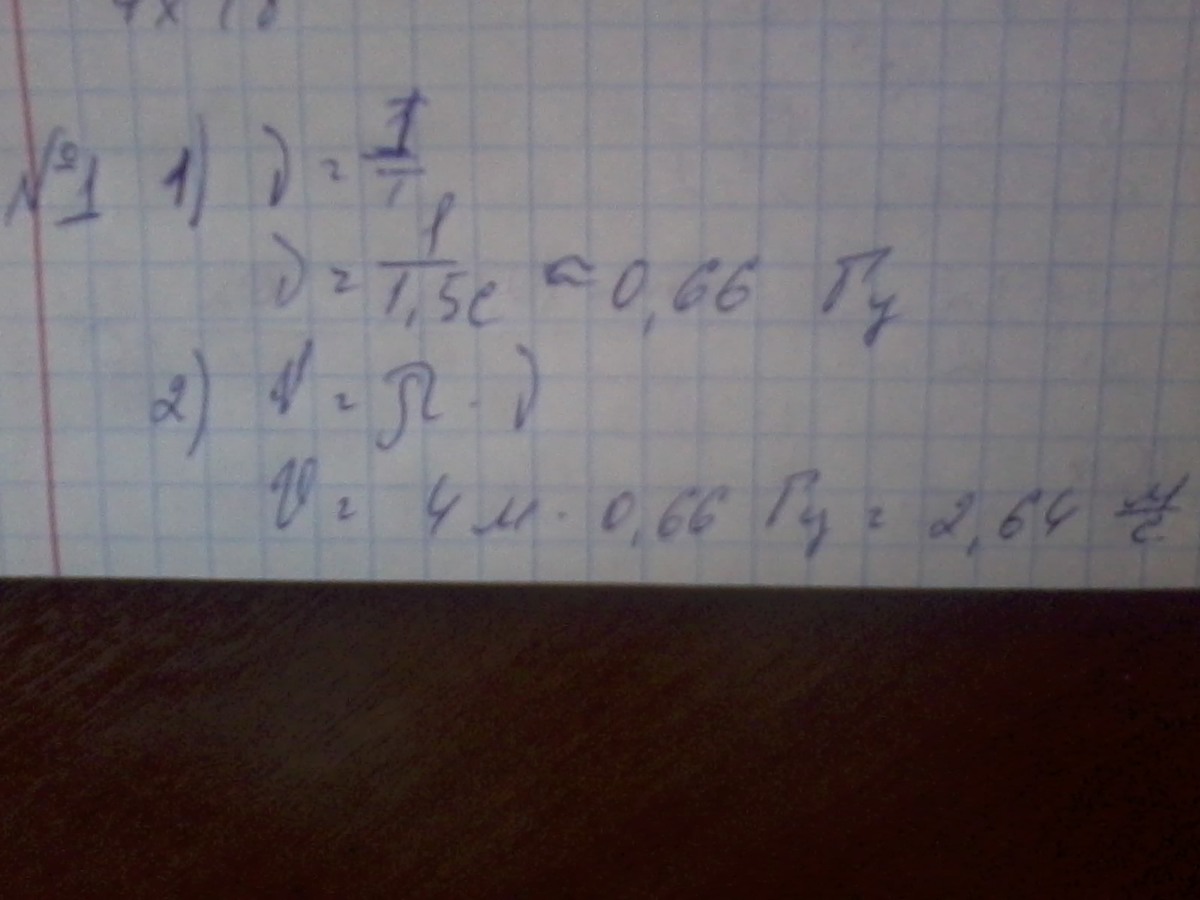 №1 1) ν = 1/T
ν = 1/1,5с ≈ 0,66 Гц
2) V = λ · ν
V = 4 м · 0,66 Гц = 2,64 м/с